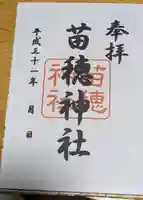 奉拝
苗穂神社
平成三十一年　月　日
苗穂
神社